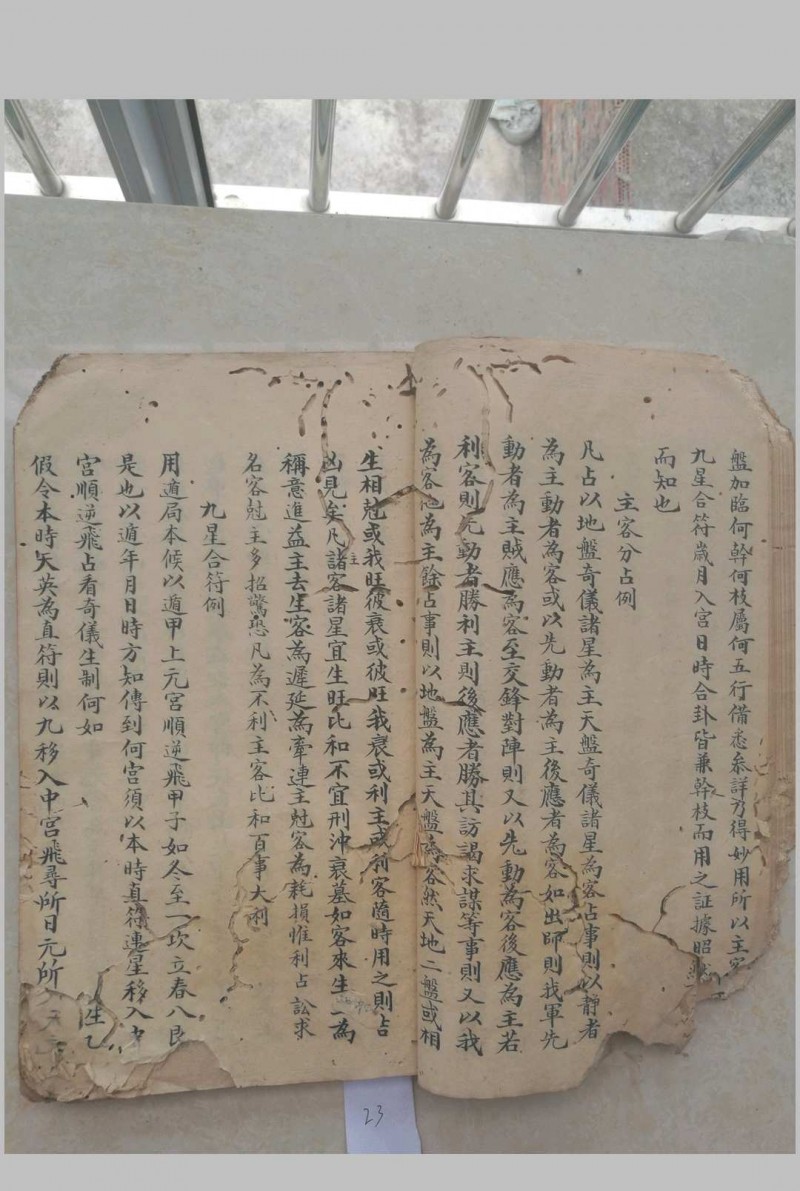 盤加臨何幹何枝屬何五行備悉參詳乃得妙用所以主客
九星合符歲月入宮日時合卦皆兼幹枝而用之証據昭然
而知也
主客分占例
凡占以地盤奇儀諸星為主天盤奇儀諸星為客占事則以靜者
為主動者為客或以先動者為主後應者為客如出師則我軍先
動者為主賊應為客至交鋒對陣則又以先動為客後應為主若
利客則先動者勝利主則後應者勝其訪謁求謀等事則又以我
為客他為主餘占事則以地盤為主天盤為客然天地二盤或相
生相尅或我旺彼衰或彼旺我衰或利主或利客隨時用之則吉
凶見矣凡諸客諸星宜生旺比和不宜刑沖衰墓如客來生主為
稱意進益主去生客為遲延為牽連主尅客為耗損惟利占訟求
名客尅主多招驚恐凡為不利主客比和百事大利
九星合符例
用遁局本候以遁甲上元宮順逆飛甲子如冬至一坎立春八艮
是也以遁年月日時方知傳到何宮須以本時直符連星移入中
宮順逆飛占看奇儀生制何如
假令本時天英為直符則以九移入中宮飛尋所日元所
生乙
23